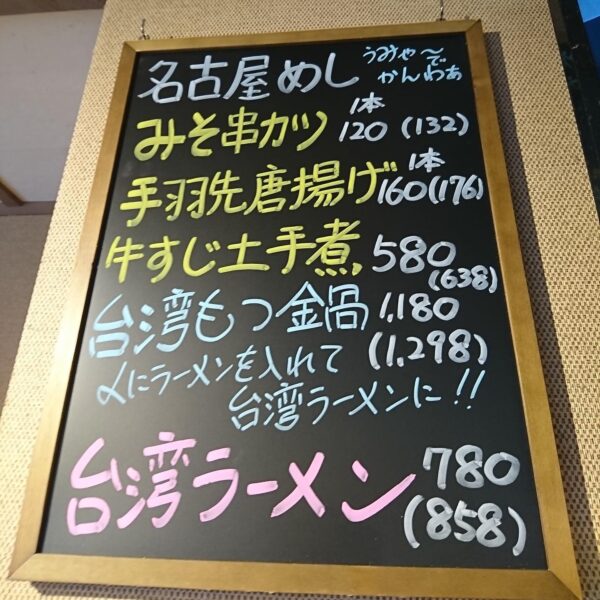 名古屋めし うみゃ〜で
かんわぁ
みそ串カツ 1本 120 (132)
手羽先唐揚げ 1本 160(176)
牛すじ土手煮 580
(638)
台湾もつ金鍋 1,180
(1,298)
〆にラーメンを入れて
台湾ラーメンに!!
台湾ラーメン 780
(858)